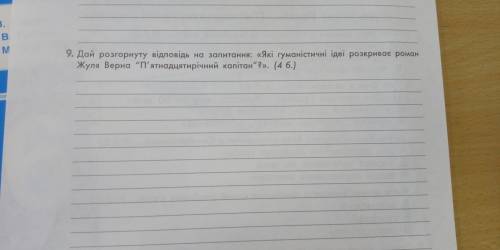 В.
В
М
9. Дай розгорнуту відповідь на запитання: «Які гуманістичні ідеї розкриває роман
Жуля Верна "П'ятнадцятирічний капітан"?». (4 б.)